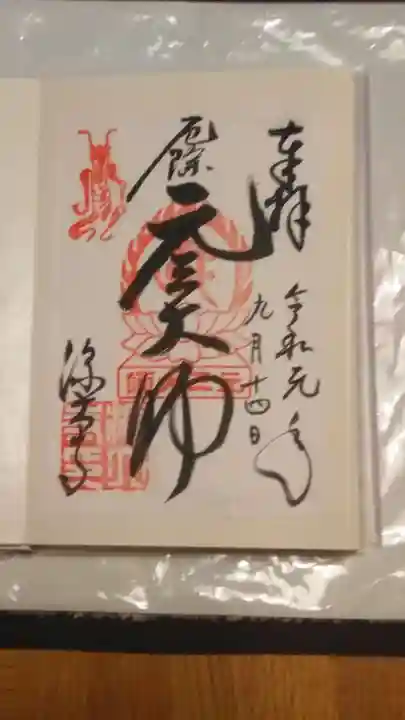 奉拝
令和元年
九月十四日
厄除
元三大師
深大寺